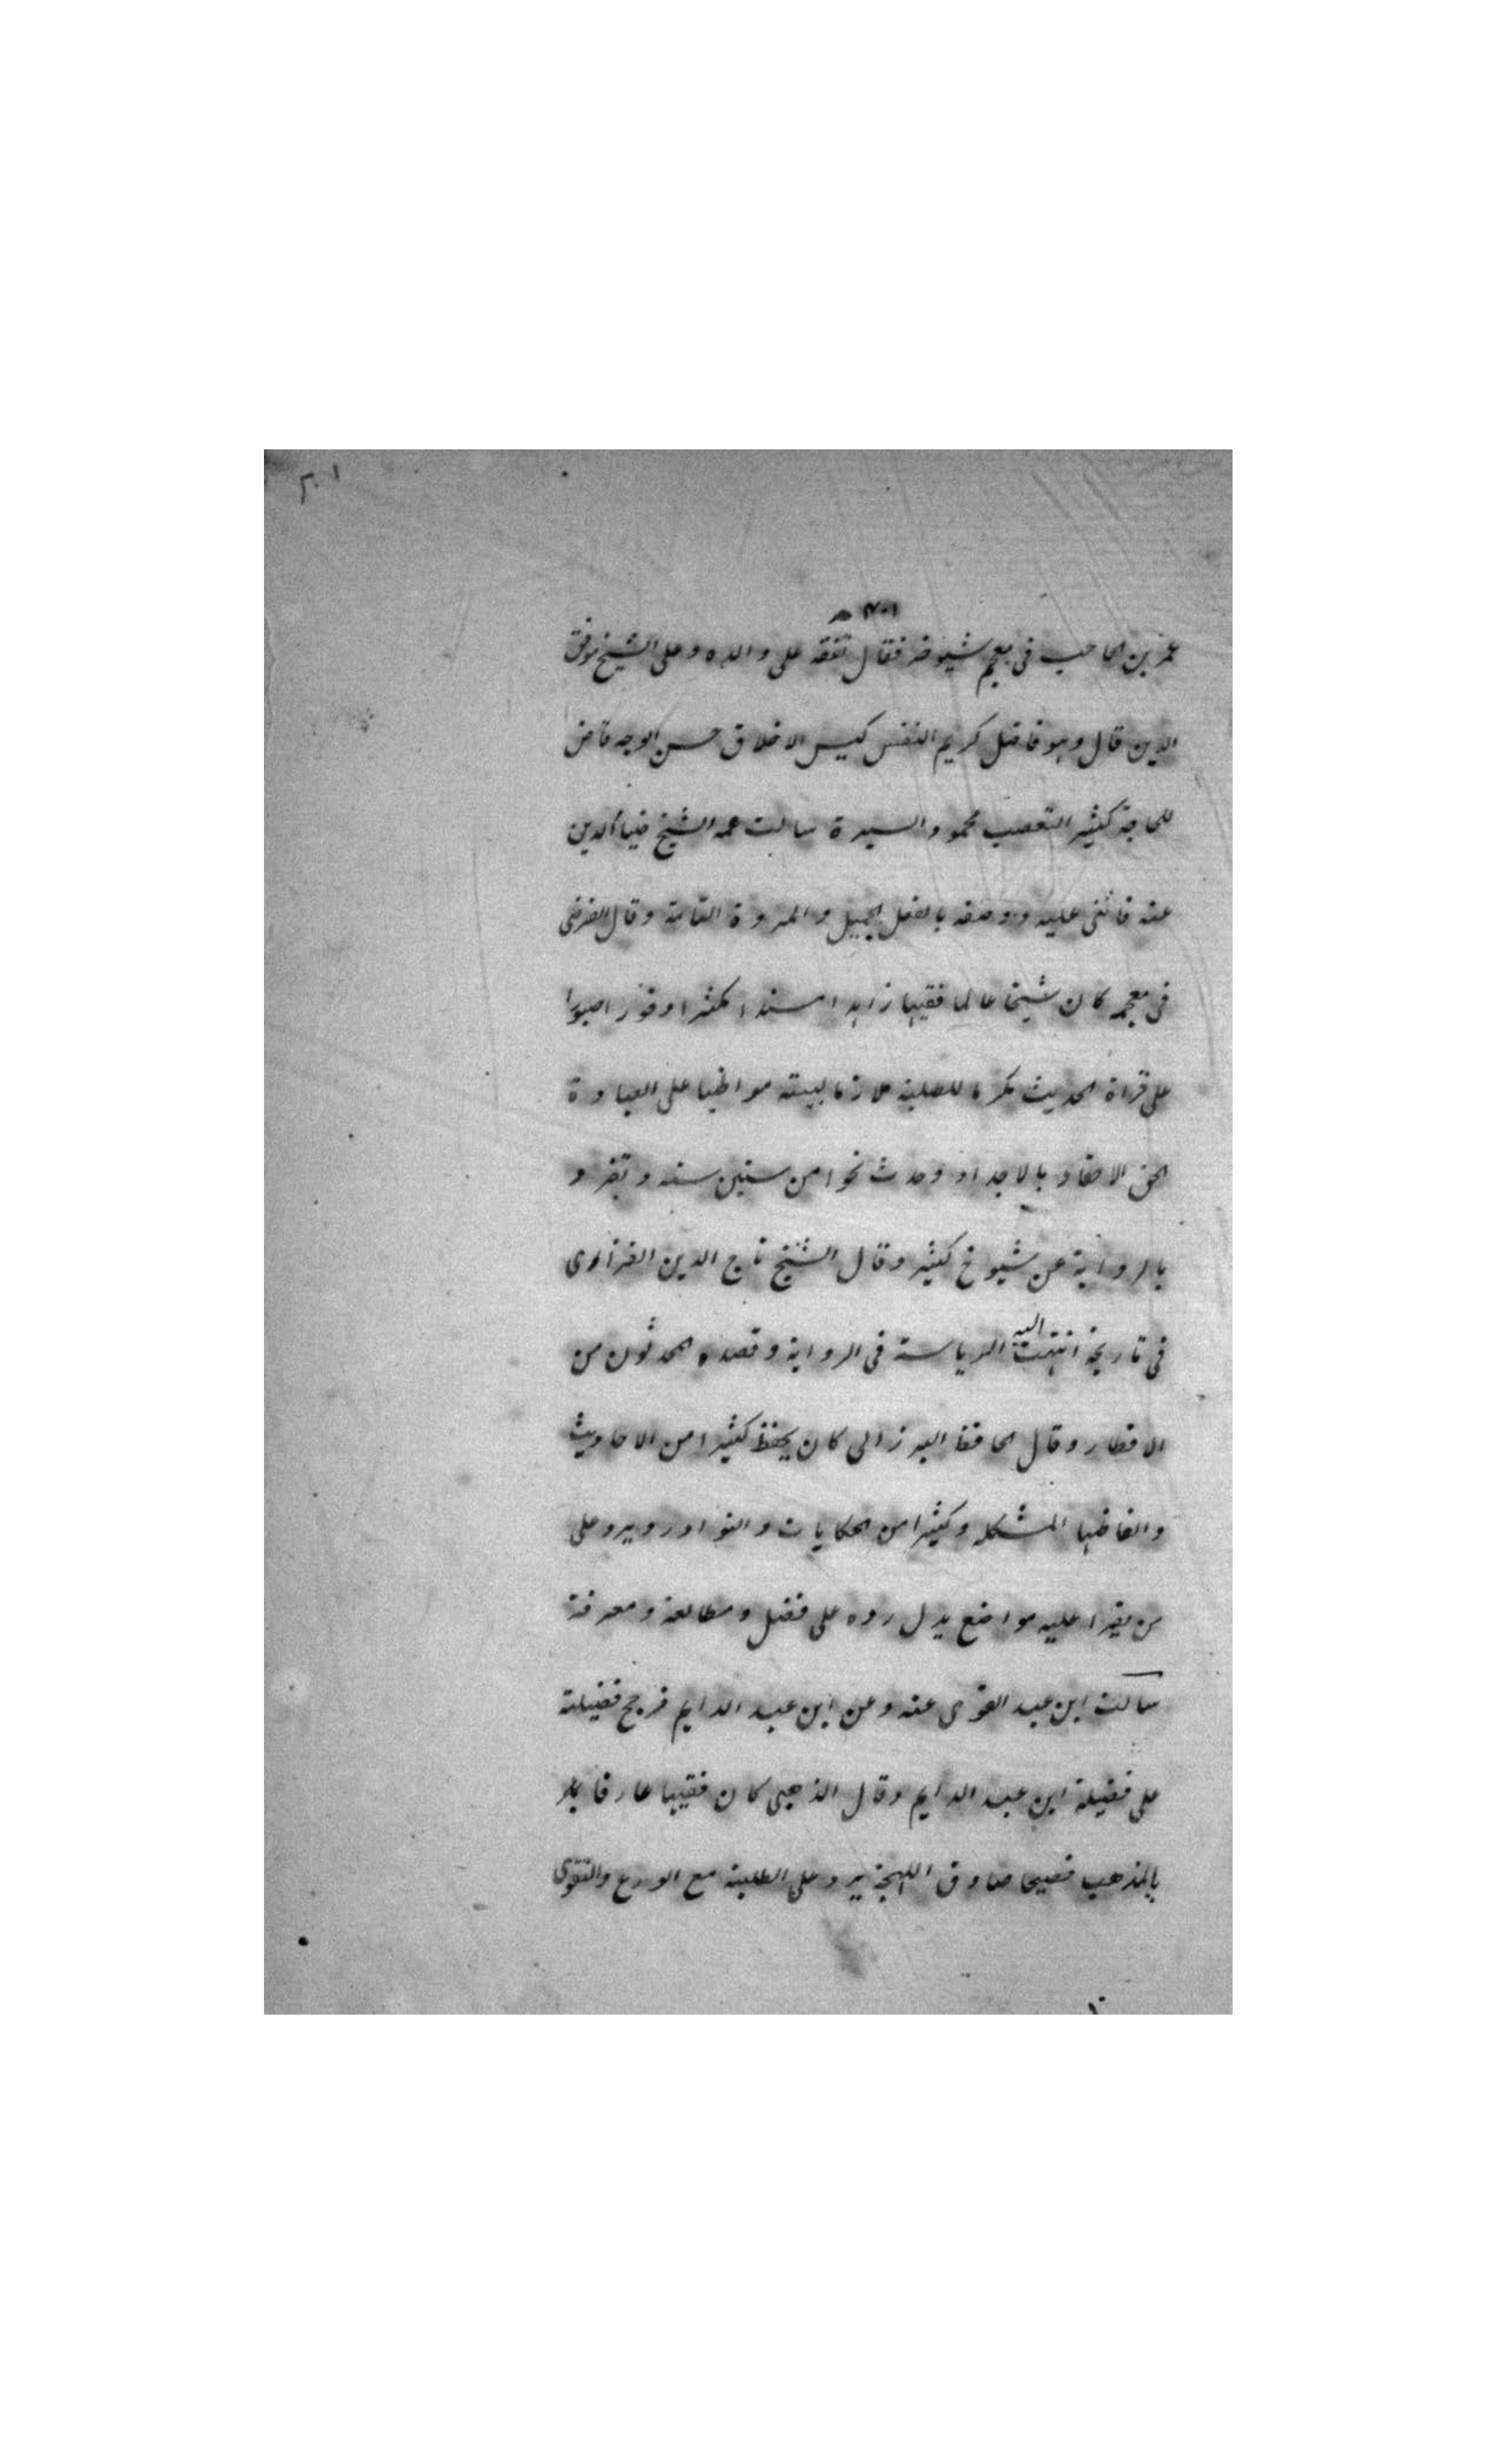 ٢٠١
عمر بن الحاجب فى معجم شيوخه فقال تفقه على والده وعلى الشيخ موفق
الدين قال وهو فاضل كريم النفس كيس الاخلاق حسن الوجه قاض
للحاجة كثير التعصب محمود السيرة سالت عمه الشيخ ضياء الدين
عنه فاثنى عليه ووصفه بالفعل الجميل والمروة التامة وقال الفرضى
فى معجمه كان شيخا عالما فقيها زاهدا مسندا مكثرا وقورا صبورا
على قراة الحديث مكرما للطلبة ملازما لبيته مواظبا على العبادة
الحق الاحفاد بالاجداد وحدث نحوا من ستين سنه وتفرد
بالرواية عن شيوخ كثير وقال الشيخ تاج الدين الفزاوى
فى تاريخه انتهت اليه الرياسة فى الرواية وقصده المحدثون من
الاقطار وقال الحافظ البرزالى كان يحفظ كثيرا من الاحاديث
والفاظها المشكله وكثيرا من الحكايات والنوادر ويرد على
من يقرا عليه مواضع يدل رده على فضل ومطالعة ومعرفة
سالت ابن عبد القوى عنه وعن ابن عبد الدايم فرجح فضيلته
على فضيلة ابن عبد الدايم وقال الذهبى كان فقيها عارفا
بالمذهب فصيحا صادق اللهجة يرد على الطلبة مع الورع والتقوى